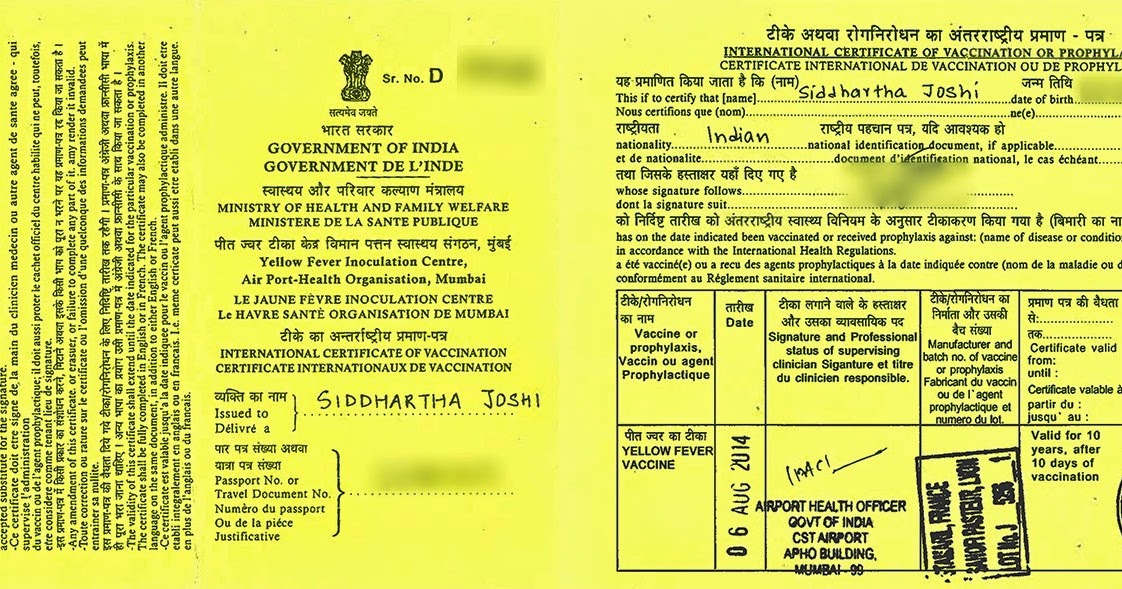 accepted substitute for the signature.
-Ce certificate doit etre signe de la main du clinicien medecin ou autre agent de sante agree - qui
supervise l'administration
du vaccin ou de l'agent prophylactique; il doit aussi proter le cachet officiel du centre habilite qui ne peut, toutefois,
etre considere comme tenant lieu de signature.
-इस प्रमाण-पत्र में किसी प्रकार का संशोधन करने, मिटाने अथवा इसके किसी भाग को पूरा न भरने पर यह प्रमाण-पत्र रद्द किया जा सकता है ।
-Any amendment of this certificate. or erasuer, or failure to complete any part of it. any render it invalid.
-Toute correction ou rature sur le certificate ou l'omission d'une quelconque des informations demandees peut
entrainer sa nullite.
इस प्रमाण-पत्र की वैधता दिये गये टीका/रोगनिरोधन के लिए निर्दिष्ट तारीख तक रहेगी । प्रमाण-पत्र अंग्रेजी अथवा फ्रान्सीसी भाषा में
ही पूरा भरा जाना चाहिए । अन्य भाषा का प्रयोग उसी प्रमाण-पत्र में अंग्रेजी अथवा फ्रान्सीसी के साथ किया जा सकता है ।
-The validity of this certificate shall extend until the date indicated for the particular vaccination or prophylaxis.
The certificate shall be fully completed in English or in French. The certificate may also be completed in another
language on the same document, in addition to either English or French.
-Ce certificat est valable jusqu'à la date indiquee pour le vaccin ou l'agent prophylactique administre. Il doit etre
etabli integralement en anglais ou en francais. I.e. meme certicate peut aussi etre etabli dans une autre langue.
en plus de l'anglais ou du francais.
Sr. No. D
सत्यमेव जयते
भारत सरकार
GOVERNMENT OF INDIA
GOVERNMENT DE L'INDE
स्वास्थय और परिवार कल्याण मंत्रालय
MINISTRY OF HEALTH AND FAMILY WELFARE
MINISTERE DE LA SANTE PUBLIQUE
पीत ज्वर टीका केंद्र विमान पत्तन स्वास्थय संगठन, मुंबई
Yellow Fever Inoculation Centre,
Air Port-Health Organisation, Mumbai
LE JAUNE FÈVRE INOCULATION CENTRE
Le HAVRE SANTÈ ORGANISATION DE MUMBAI
टीके का अन्तर्राष्ट्रीय प्रमाण-पत्र
INTERNATIONAL CERTIFICATE OF VACCINATION
CERTIFICATE INTERNATIONAUX DE VACCINATION
व्यक्ति का नाम
Issued to SIDDHARTHA JOSHI
Délivré a
पार पत्र संख्या अथवा
यात्रा पत्र संख्या
Passport No. or
Travel Document No.
Numèro du passport
Ou de la piéce
Justificative
टीके अथवा रोगनिरोधन का अंतरराष्ट्रीय प्रमाण - पत्र
INTERNATIONAL CERTIFICATE OF VACCINATION OR PROPHYLA
CERTIFICATE INTERNATIONAL DE VACCINATION OU DE PROPHYL
यह प्रमाणित किया जाता है कि (नाम) जन्म तिथि
This if to certify that [name] Siddhartha Joshi date of birth
Nous certifions que (nom) ne(e)
राष्ट्रीयता राष्ट्रीय पहचान पत्र, यदि आवश्यक हो
nationality Indian national identification document, if applicable
et de nationalite document d'identification national, le cas échéant
तथा जिसके हस्ताक्षर यहाँ दिए गए है
whose signature follows
dont la signature suit
को निर्दिष्ट तारीख को अंतरराष्ट्रीय स्वास्थ्य विनियम के अनुसार टीकाकरण किया गया है (बिमारी का ना
has on the date indicated been vaccinated or received prophylaxis against: (name of disease or conditio
in accordance with the International Health Regulations.
a été vacciné(e) ou a recu des agents prophylactiques à la date indiquée contre (nom de la maladie ou d
conformément au Réglement sanitaire international.
टीके/रोगनिरोधन
का नाम
Vaccine or
prophylaxis,
Vaccin ou agent
Prophylactique
तारीख
Date
टीका लगाने वाले के हस्ताक्षर
और उसका व्यावसायिक पद
Signature and Professional
status of supervising
clinician Siganture et titre
du clinicien responsible.
टीके/रोगनिरोधन का
निर्माता और उसकी
बैच संख्या
Manufacturer and
batch no. of vaccine
or prophylaxis
Fabricant du vaccin
ou de l`agent
prophylactique et
numero du lot.
प्रमाण पत्र की वैधता
से:
तक
Certificate valid
from:
until :
Certificate valable à
partir du :
jusqu' au :
पीत ज्वर का टीका
YELLOW FEVER
VACCINE
06 AUG 2014
AIRPORT HEALTH OFFICER
GOVT OF INDIA
CST AIRPORT
APHO BUILDING,
MUMBAI - 99
FRANCE
PASTEUR, LYON
LOT No. J
Valid for 10
years, after
10 days of
vaccination